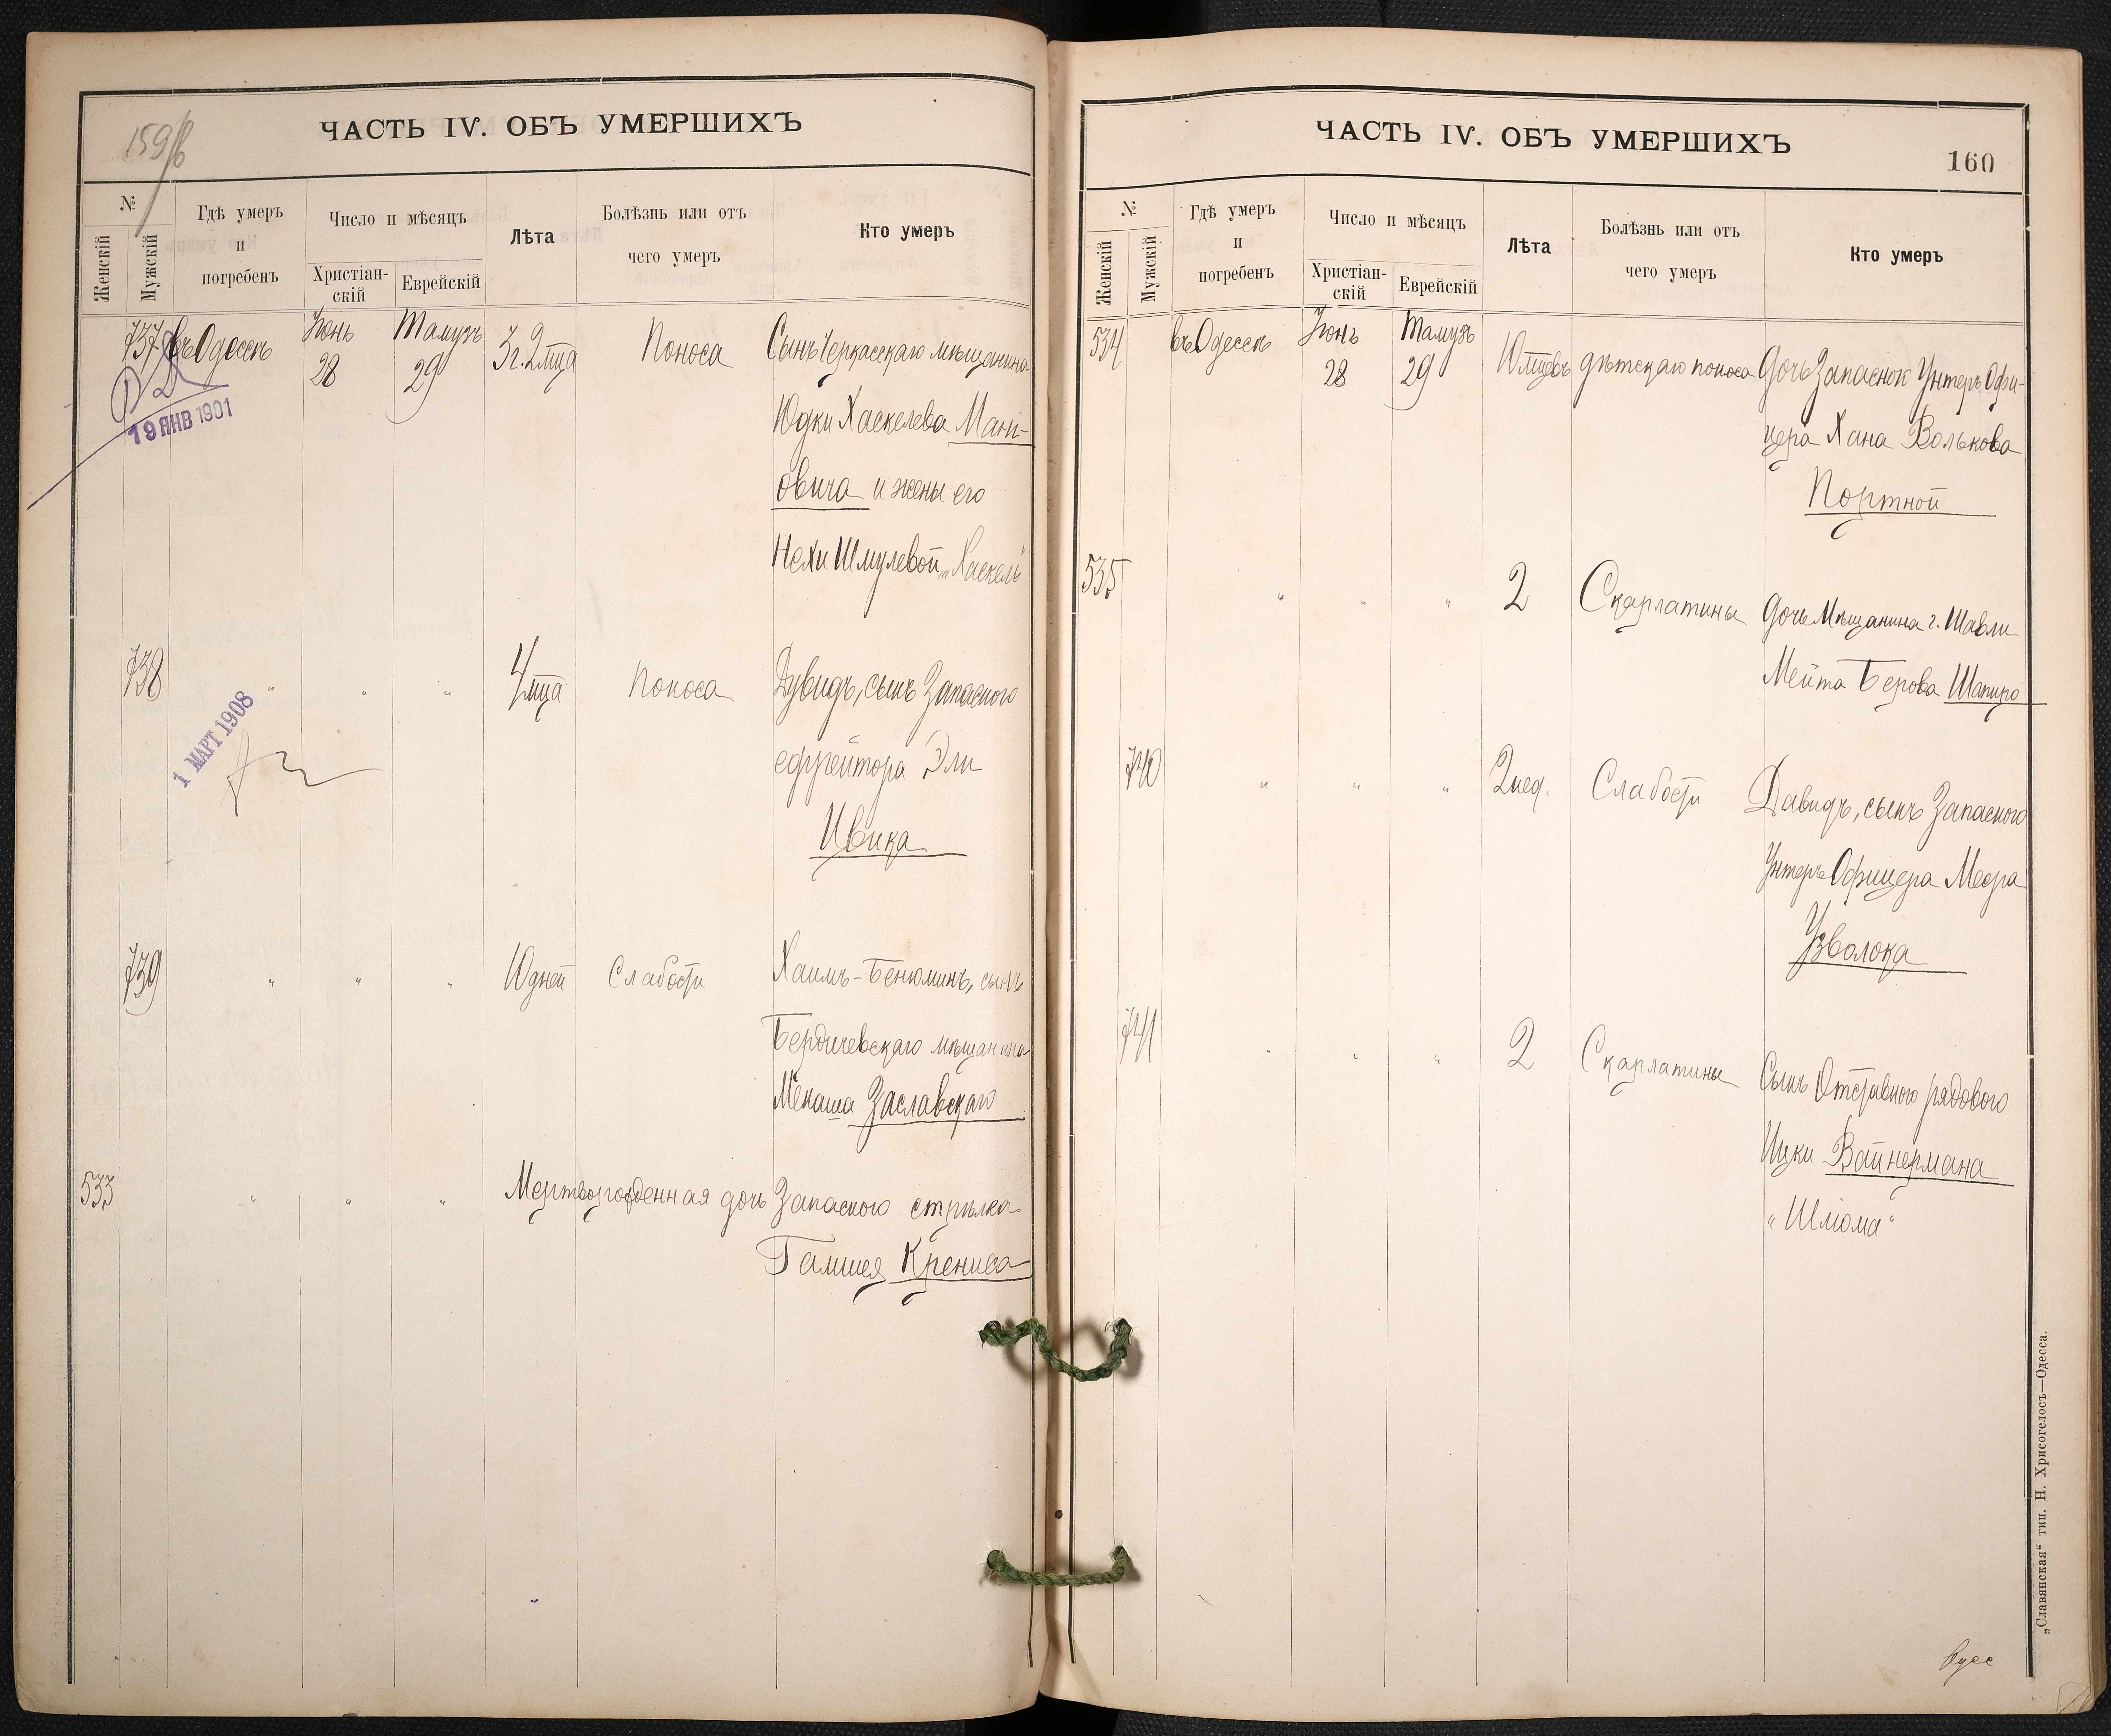 159/б
ЧАСТЬ IV. ОБЪ УМЕРШИХЪ
№
Женскій
Мужскій
Гдѣ умеръ
и
погребенъ
Число и мѣсяцъ
Христіан-
скій
Еврейскій
Лѣта
Болѣзнь или отъ
чего умеръ
Кто умеръ
737 въ Одессѣ Іюнь 28 Тамузъ 29 3 г. 2 мца Поноса Сынъ Черкасскаго мѣщанина
Юдки Хаскелева Мани-
овича и жены его
Нехи Шмулевой „Хаскель"
19 ЯНВ 1901
738 " " " 4 мца Поноса Дувидъ, сынъ Запасного
ефрейтора Эли
Цвика
1 МАРТ 1908
739 " " " 10 дней Слабости Хаимъ-Бенюминъ, сынъ
Бердичевскаго мѣщанина
Менаша Заславскаго
533 " " " Мертворожденная дочь Запасного стрѣлка
Крениса
ЧАСТЬ IV. ОБЪ УМЕРШИХЪ
160
№
Женскій
Мужскій
Гдѣ умеръ
и
погребенъ
Число и мѣсяцъ
Христіан-
скій
Еврейскій
Лѣта
Болѣзнь или отъ
чего умеръ
Кто умеръ
534 въ Одессѣ Іюнь 28 Тамузъ 29 10 мцевъ дѣтскаго поноса Дочь Запасного Унтеръ Офи-
цера Хана Волькова
Портной
535 " " " 2 Скарлатины Дочь Мѣщанина г. Шавли
Мейта Берова Шапиро
740 " " " 2 нед. Слабости Давидъ, сынъ Запасного
Унтеръ Офицера Меера
Узвалока
741 " " " 2 Скарлатины Сынъ Отставного рядового
Ицки Вайнермана
„Шлiома"
„Славянская" тип. Н. Хрисогелосъ—Одесса.